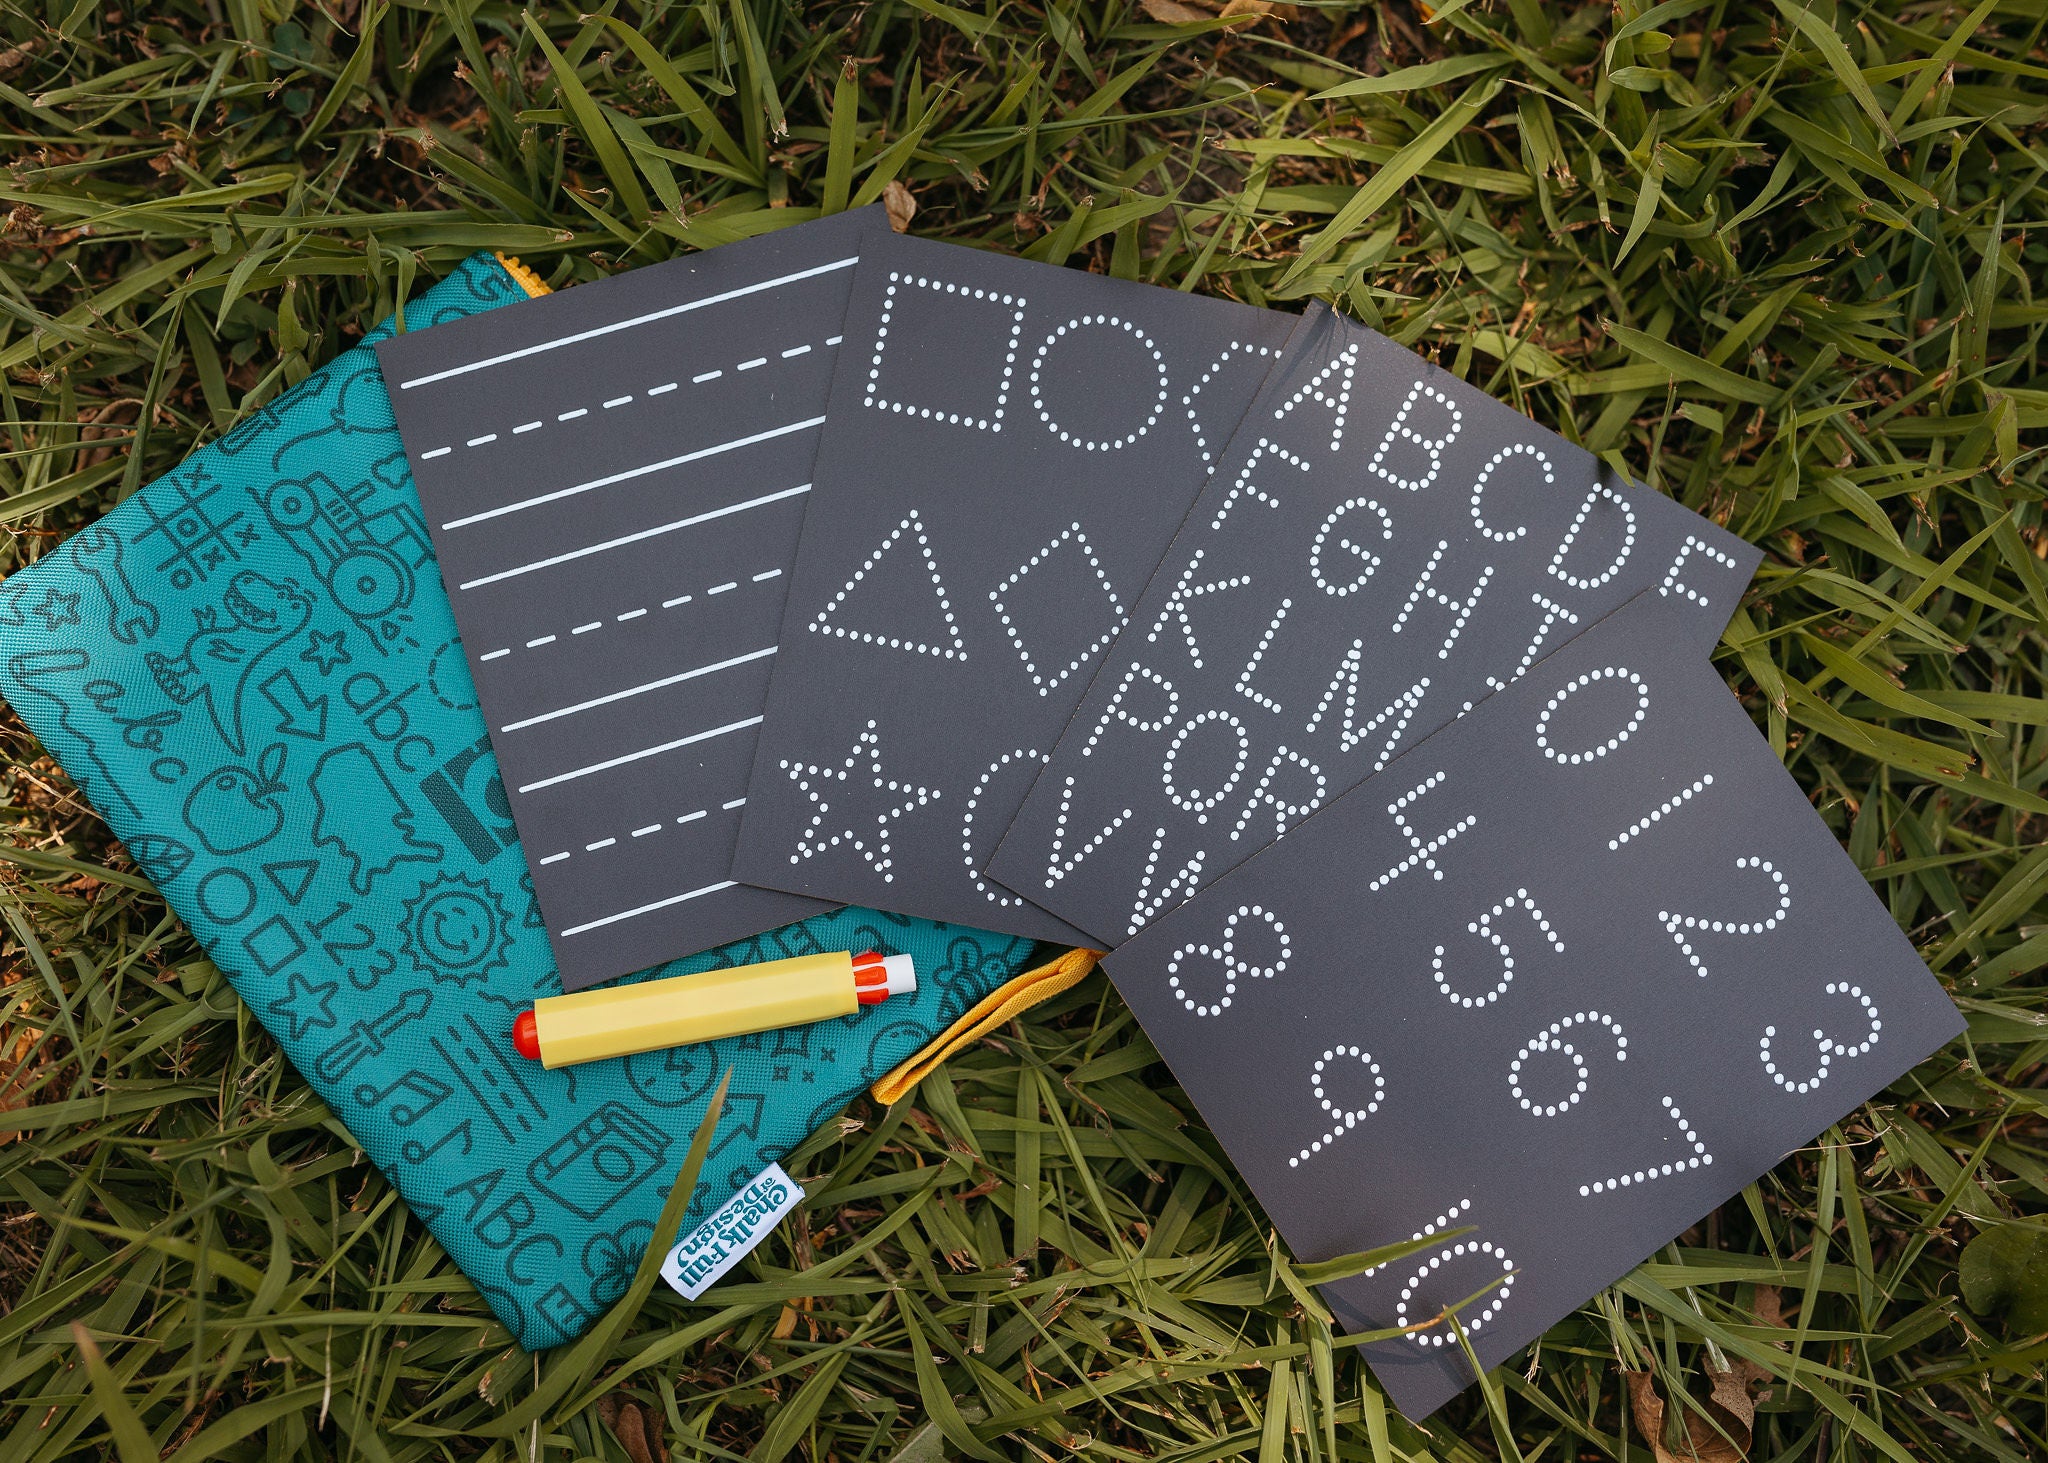 A B C D E
F G H
K L M
P Q R
V W
0 1 2 3
4 5 6 7
8 9 10
abc
abc
123
ABC
Chalk Full
of Design